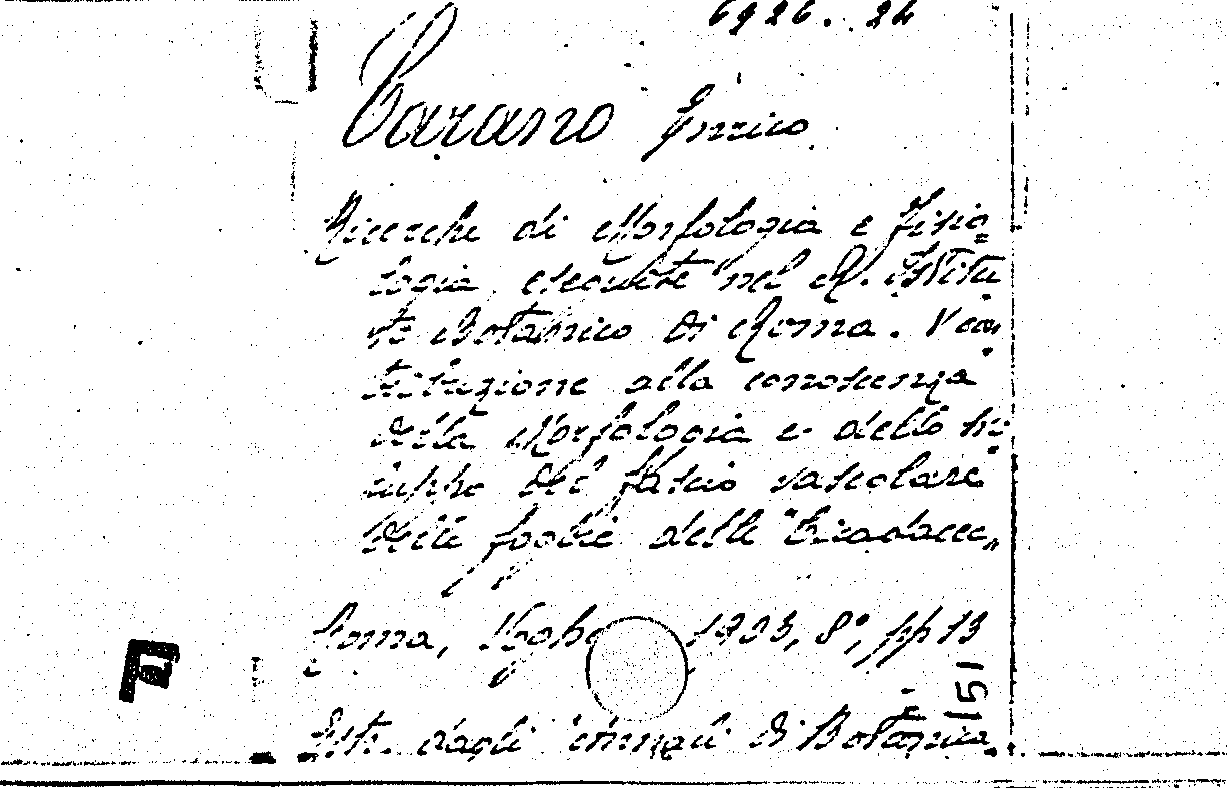 6926. 24
Carano Enrico
Ricerche di Morfologia e Fisio=
logia eseguite nel R. Istitu
to Botanico di Roma. V Con
tribuzione alla conoscenza
della Morfologia e dello svi
luppo del fascio vascolare
delle foglie delle "Cicadacee"
Roma, 1903, 8°, pp 13
Estr. dagli Annali di Botanica
F
151